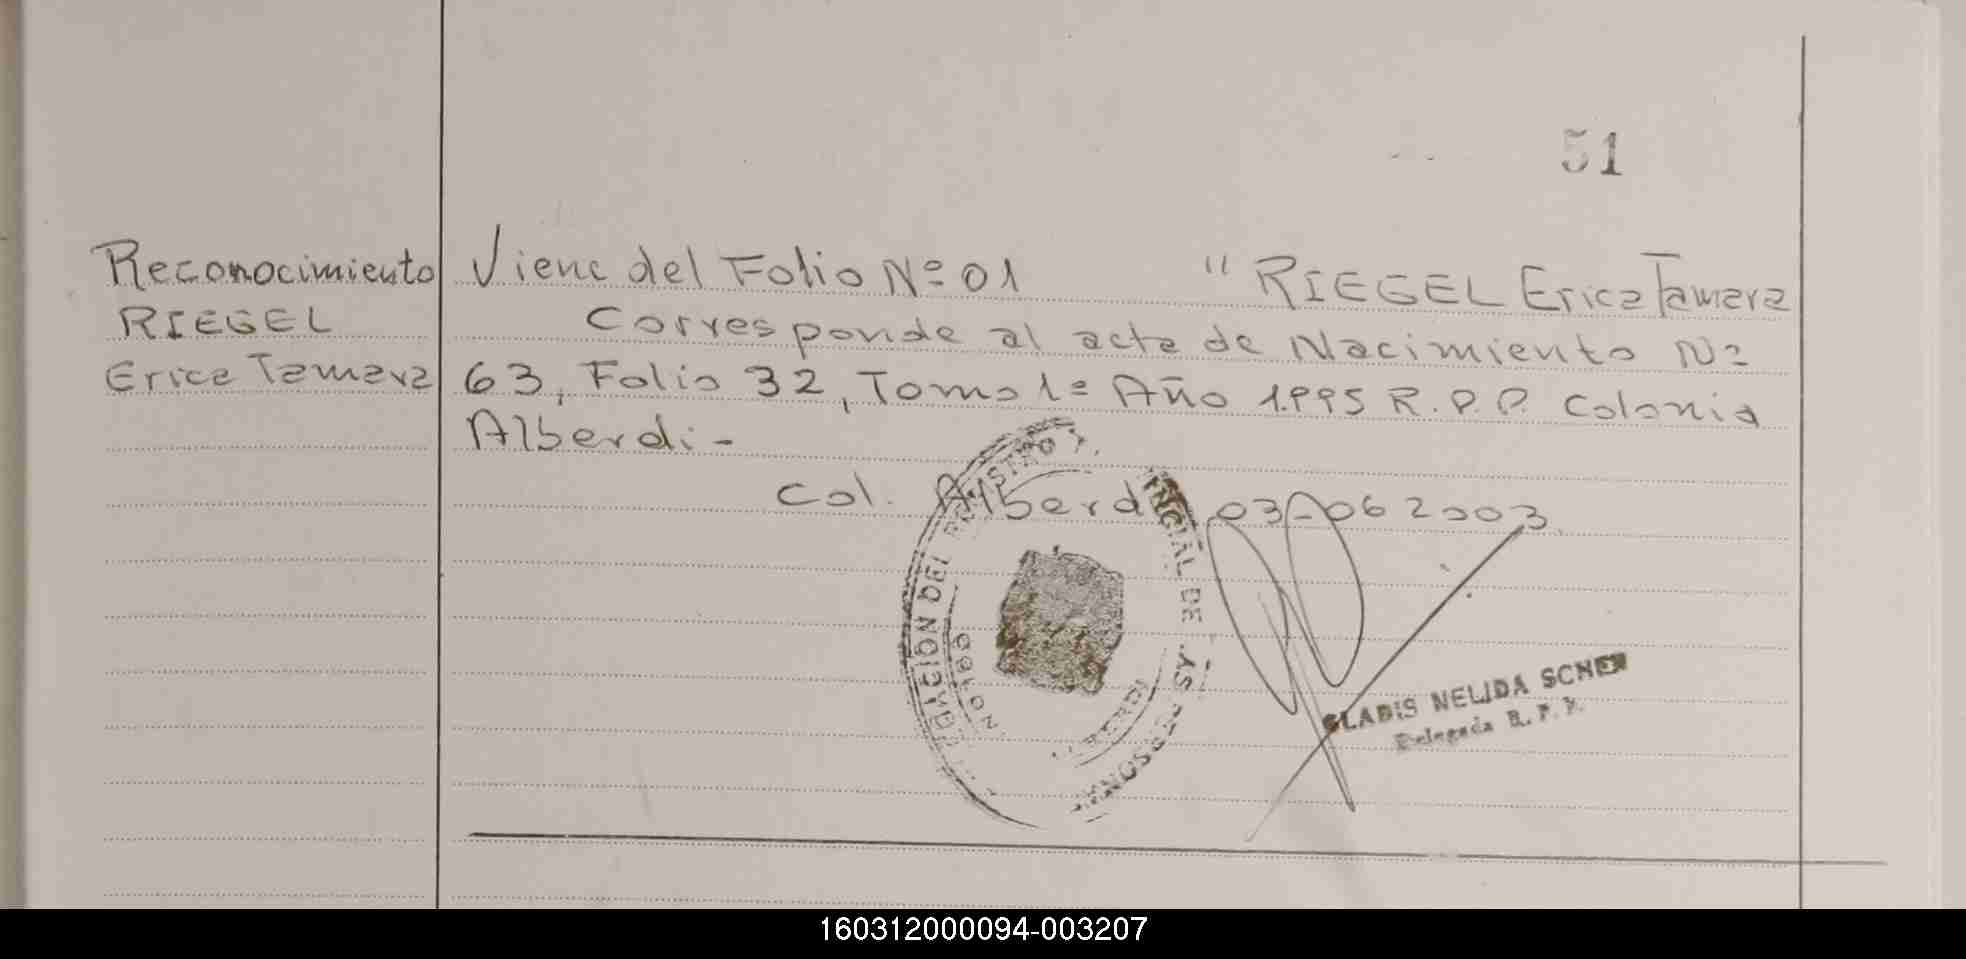 51
Reconocimiento
RIEGEL
Erica Tamara
Viene del Folio Nº 01 " RIEGEL Erica Tamara
Corresponde al acta de Nacimiento Nº
63, Folio 32, Tomo 1º Año 1.995 R.P.P. Colonia
Alberdi -
Col. Alberdi 03-06 2003
DEL REGISTRO P.
NCIAL DE
GLADIS NELIDA
Delegada R. P. P.
160312000094-003207